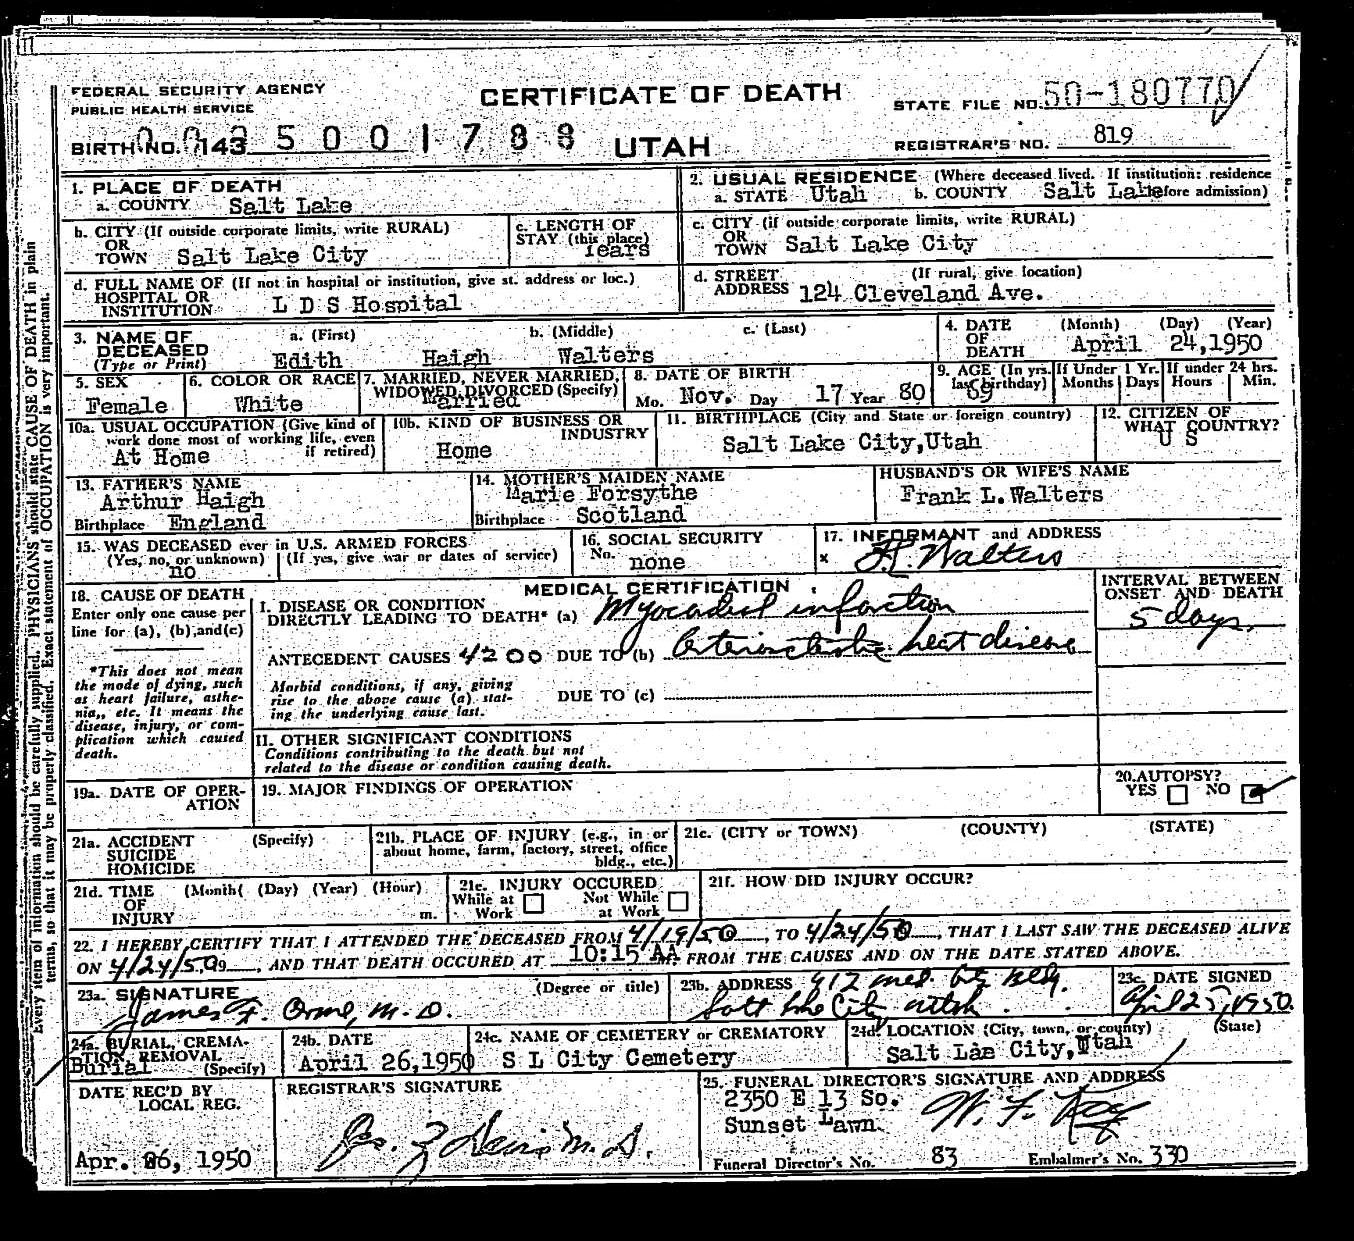 FEDERAL SECURITY AGENCY
PUBLIC HEALTH SERVICE
CERTIFICATE OF DEATH
STATE FILE NO. 50-180770
BIRTH NO. 143
5 0 0 1 7 8 8
UTAH
REGISTRAR'S NO. 819
1. PLACE OF DEATH
a. COUNTY Salt Lake
2. USUAL RESIDENCE (Where deceased lived. If institution: residence before admission)
a. STATE Utah b. COUNTY Salt Lake
b. CITY (If outside corporate limits, write RURAL)
OR
TOWN Salt Lake City
c. LENGTH OF
STAY (this place)
Years
c. CITY (if outside corporate limits, write RURAL)
OR
TOWN Salt Lake City
d. FULL NAME OF (If not in hospital or institution, give st. address or loc.)
HOSPITAL OR
INSTITUTION L D S Hospital
d. STREET (If rural, give location)
ADDRESS 124 Cleveland Ave.
3. NAME OF
DECEASED
(Type or Print)
a. (First) b. (Middle) c. (Last)
Edith Haigh Walters
4. DATE
OF
DEATH
(Month) (Day) (Year)
April 24,1950
5. SEX
Female
6. COLOR OR RACE
White
7. MARRIED, NEVER MARRIED,
WIDOWED, DIVORCED (Specify)
Married
8. DATE OF BIRTH
Mo. Nov. Day 17 Year 80
9. AGE (In yrs. last birthday)
69
If Under 1 Yr.
Months Days
If under 24 hrs.
Hours Min.
10a. USUAL OCCUPATION (Give kind of
work done most of working life, even
if retired)
At Home
10b. KIND OF BUSINESS OR
INDUSTRY
Home
11. BIRTHPLACE (City and State or foreign country)
Salt Lake City,Utah
12. CITIZEN OF
WHAT COUNTRY?
U S
13. FATHER'S NAME
Arthur Haigh
Birthplace England
14. MOTHER'S MAIDEN NAME
Marie Forsythe
Birthplace Scotland
HUSBAND'S OR WIFE'S NAME
Frank L.Walters
15. WAS DECEASED ever in U.S. ARMED FORCES
(Yes, no, or unknown) (If yes, give war or dates of service)
no
16. SOCIAL SECURITY
No. none
17. INFORMANT and ADDRESS
x F.L. Walters
18. CAUSE OF DEATH
Enter only one cause per
line for (a), (b),and(c)
*This does not mean
the mode of dying, such
as heart failure, asthe-
nia,, etc. It means the
disease, injury, or com-
plication which caused
death.
MEDICAL CERTIFICATION
I. DISEASE OR CONDITION
DIRECTLY LEADING TO DEATH* (a) Myocardial infarction
ANTECEDENT CAUSES 4200 DUE TO (b) Arteriosclerotic heart disease
Morbid conditions, if any, giving
rise to the above cause (a) stat-
ing the underlying cause last.
DUE TO (c)
INTERVAL BETWEEN
ONSET AND DEATH
5 days.
II. OTHER SIGNIFICANT CONDITIONS
Conditions contributing to the death but not
related to the disease or condition causing death.
19a. DATE OF OPER-
ATION
19. MAJOR FINDINGS OF OPERATION
20.AUTOPSY?
YES NO
21a. ACCIDENT (Specify)
SUICIDE
HOMICIDE
21b. PLACE OF INJURY (e.g., in or
about home, farm, factory, street, office
bldg., etc.)
21c. (CITY or TOWN) (COUNTY) (STATE)
21d. TIME (Month( (Day) (Year) (Hour)
OF
INJURY m.
21e. INJURY OCCURED
While at Work Not While at Work
21f. HOW DID INJURY OCCUR?
22. I HEREBY CERTIFY THAT I ATTENDED THE DECEASED FROM 4/19/50, TO 4/24/50, THAT I LAST SAW THE DECEASED ALIVE
ON 4/24/50, AND THAT DEATH OCCURED AT 10:15 A M. FROM THE CAUSES AND ON THE DATE STATED ABOVE.
23a. SIGNATURE (Degree or title)
James F. Orme, M.D.
23b. ADDRESS 912 Med. Bldg.
Salt Lake City Utah
23c. DATE SIGNED
April 25, 1950.
24a. BURIAL, CREMA-
TION, REMOVAL
(Specify)
Burial
24b. DATE
April 26,1950
24c. NAME OF CEMETERY or CREMATORY
S L City Cemetery
24d. LOCATION (City, town, or county) (State)
Salt Lae City,Utah
DATE REC'D BY
LOCAL REG.
Apr. 26, 1950
REGISTRAR'S SIGNATURE
M.D.
25. FUNERAL DIRECTOR'S SIGNATURE AND ADDRESS
2350 E 13 So.
Sunset Lawn
Funeral Director's No. 83 Embalmer's No. 330
Every item of information should be carefully supplied. PHYSICIANS should state CAUSE OF DEATH in plain
terms, so that it may be properly classified. Exact statement of OCCUPATION is very important.